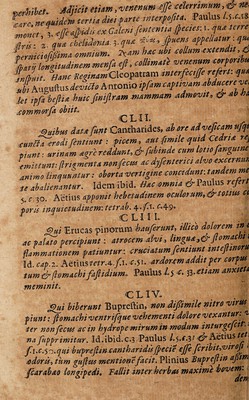 perhibet. Adjicit etiam, venenum esse celerrimum, & ne-
care, ne quidem tertia diei parte interposita. Paulus l.5.c.15.
monet, 3. esse aspidis ex Galeni sententia species: 1. qua terre-
stris: 2. qua chelidonia 3. quæ spuens appellatur: qua
perniciosissima omnium. Nam hac ubi collum extendit, &
spatij longitudinem mensa est, collimate venenum corporibus
inspuit. Hanc Reginam Cleopatram interfecisse referr: qua
ubi Augustus devicto Antonio ipsam captivam abducere vel-
let ipsa bestia huic sinistram mammam admovit, & ab ha
commorsa obiit.
CLII.
Quibus data sunt Cantharides, ab ore ad vesicam usque
cuncta erodi sentiunt: picem, aut simile quid Cedria re-
piunt: urinam agre reddunt, & subinde cum lotio sanguinem
emittunt: strigmenta non secus ac dysenterici alvo excernunt
animo linquuntur: oborta vertigine concidunt: tandem men-
te abalienantur. Idem ibid. Hac omnia & Paulus refert
5.c.30. Aetius apponit hebetudinem oculorum, & totius cor-
poris inquietudinem: tetrab. 4. s.1. c.49.
CLIII.
Qui Erucas pinorum hauserunt, illico dolorem in ore
ac palato percipiunt: atrocem alvi, lingua, & stomachi in-
flammationem patiuntur: cruciatum sentiunt intestinorum
Id. cap. 2. Aetius terr. 4. s.1. c.51. ardorem addit per corpus to-
tum & stomachi fastidium. Paulus l.5 c. 33. etiam anxietatis
meminit.
CLIV.
Qui biberunt Buprestin, non dissimile nitro virus
piunt: stomachi ventrisque vehementi dolore vexantur: ve-
ter non secus ac in hydrope mirum in modum inturgescit:
na supprimitur. Id. ibid. c.3 Paulus l.5.c.31 & Aetius
s.1.c.50. qui buprestin cantharidis specie esse scribit, virosi
odoris, tum gustus mentione facit. Plinius Buprestin assimi-
scarabæo longipedi. Fallit inter herbas maxime bovem:
den